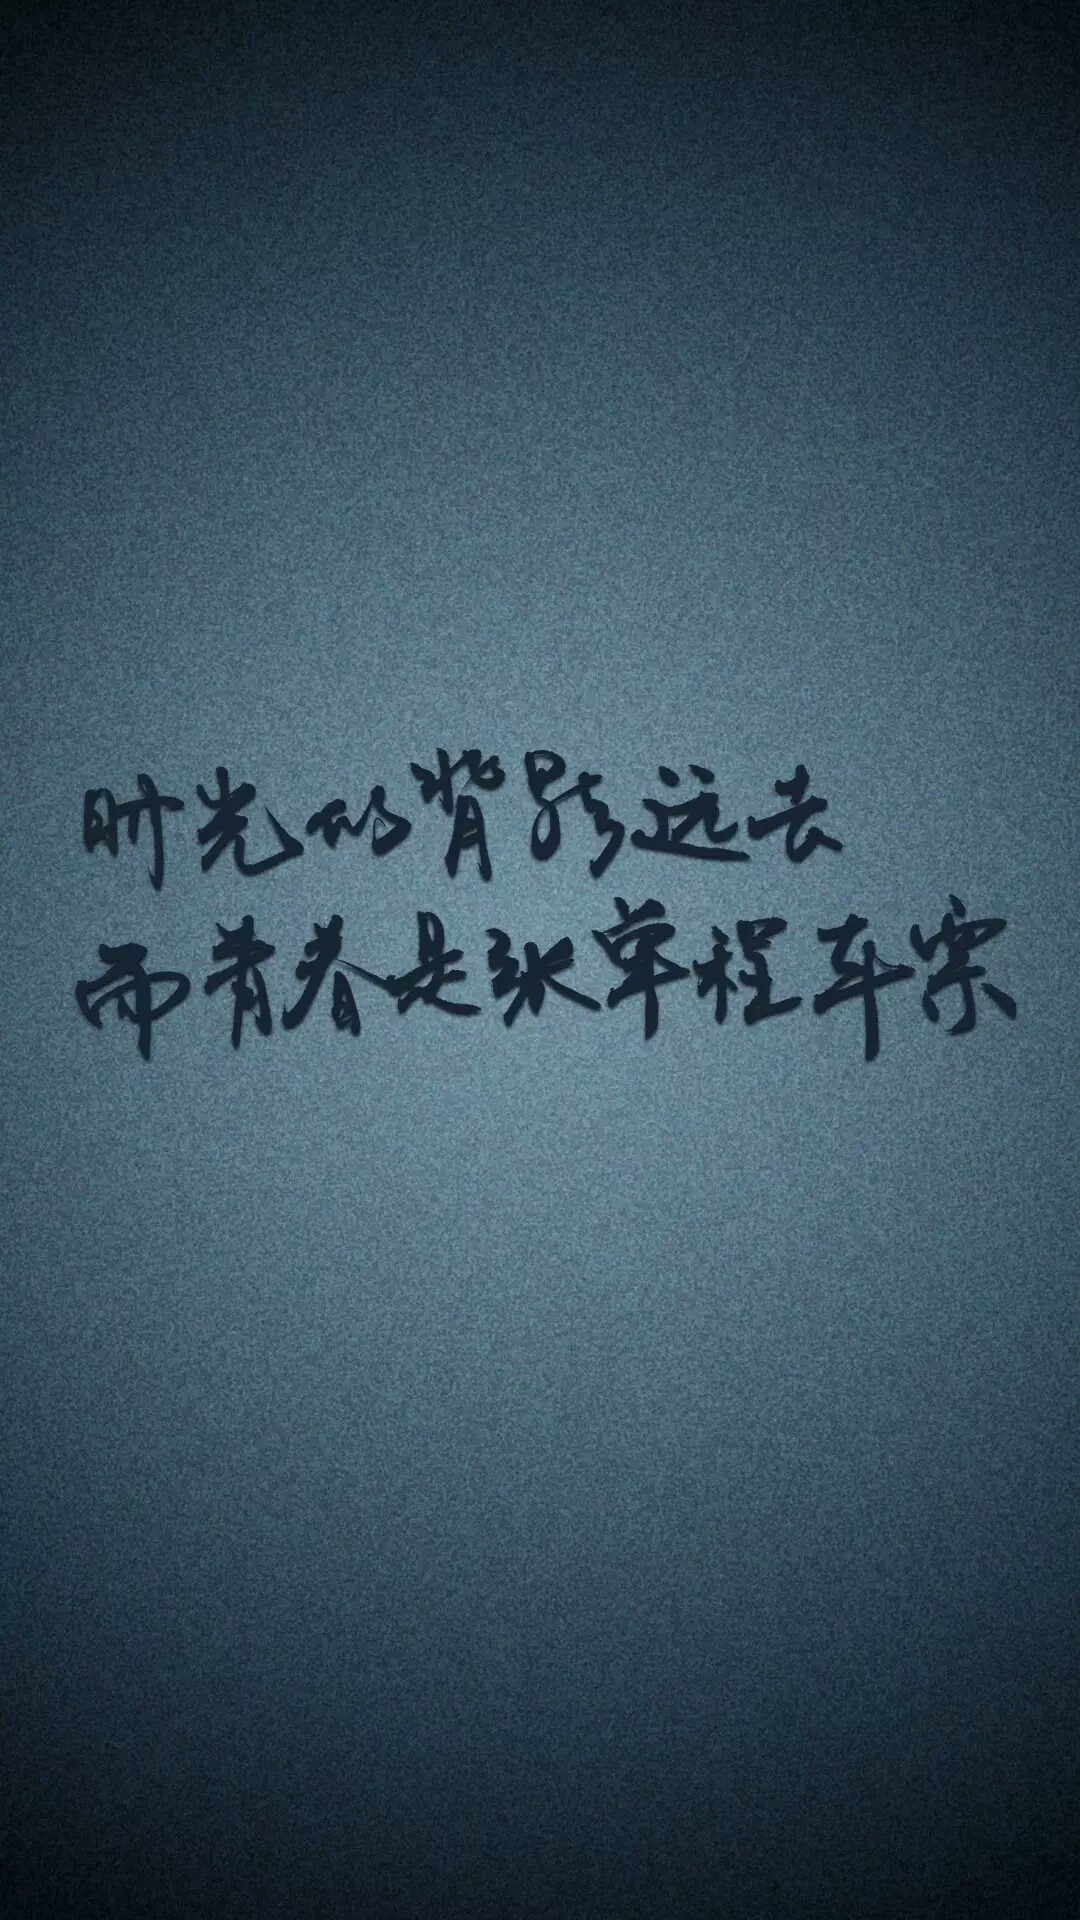 时光的背影远去
而青春是张单程车票